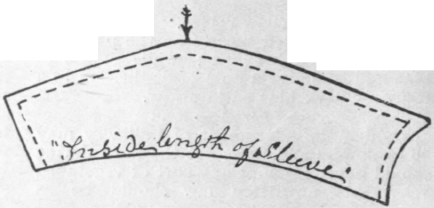 "Inside length of Sleeve"